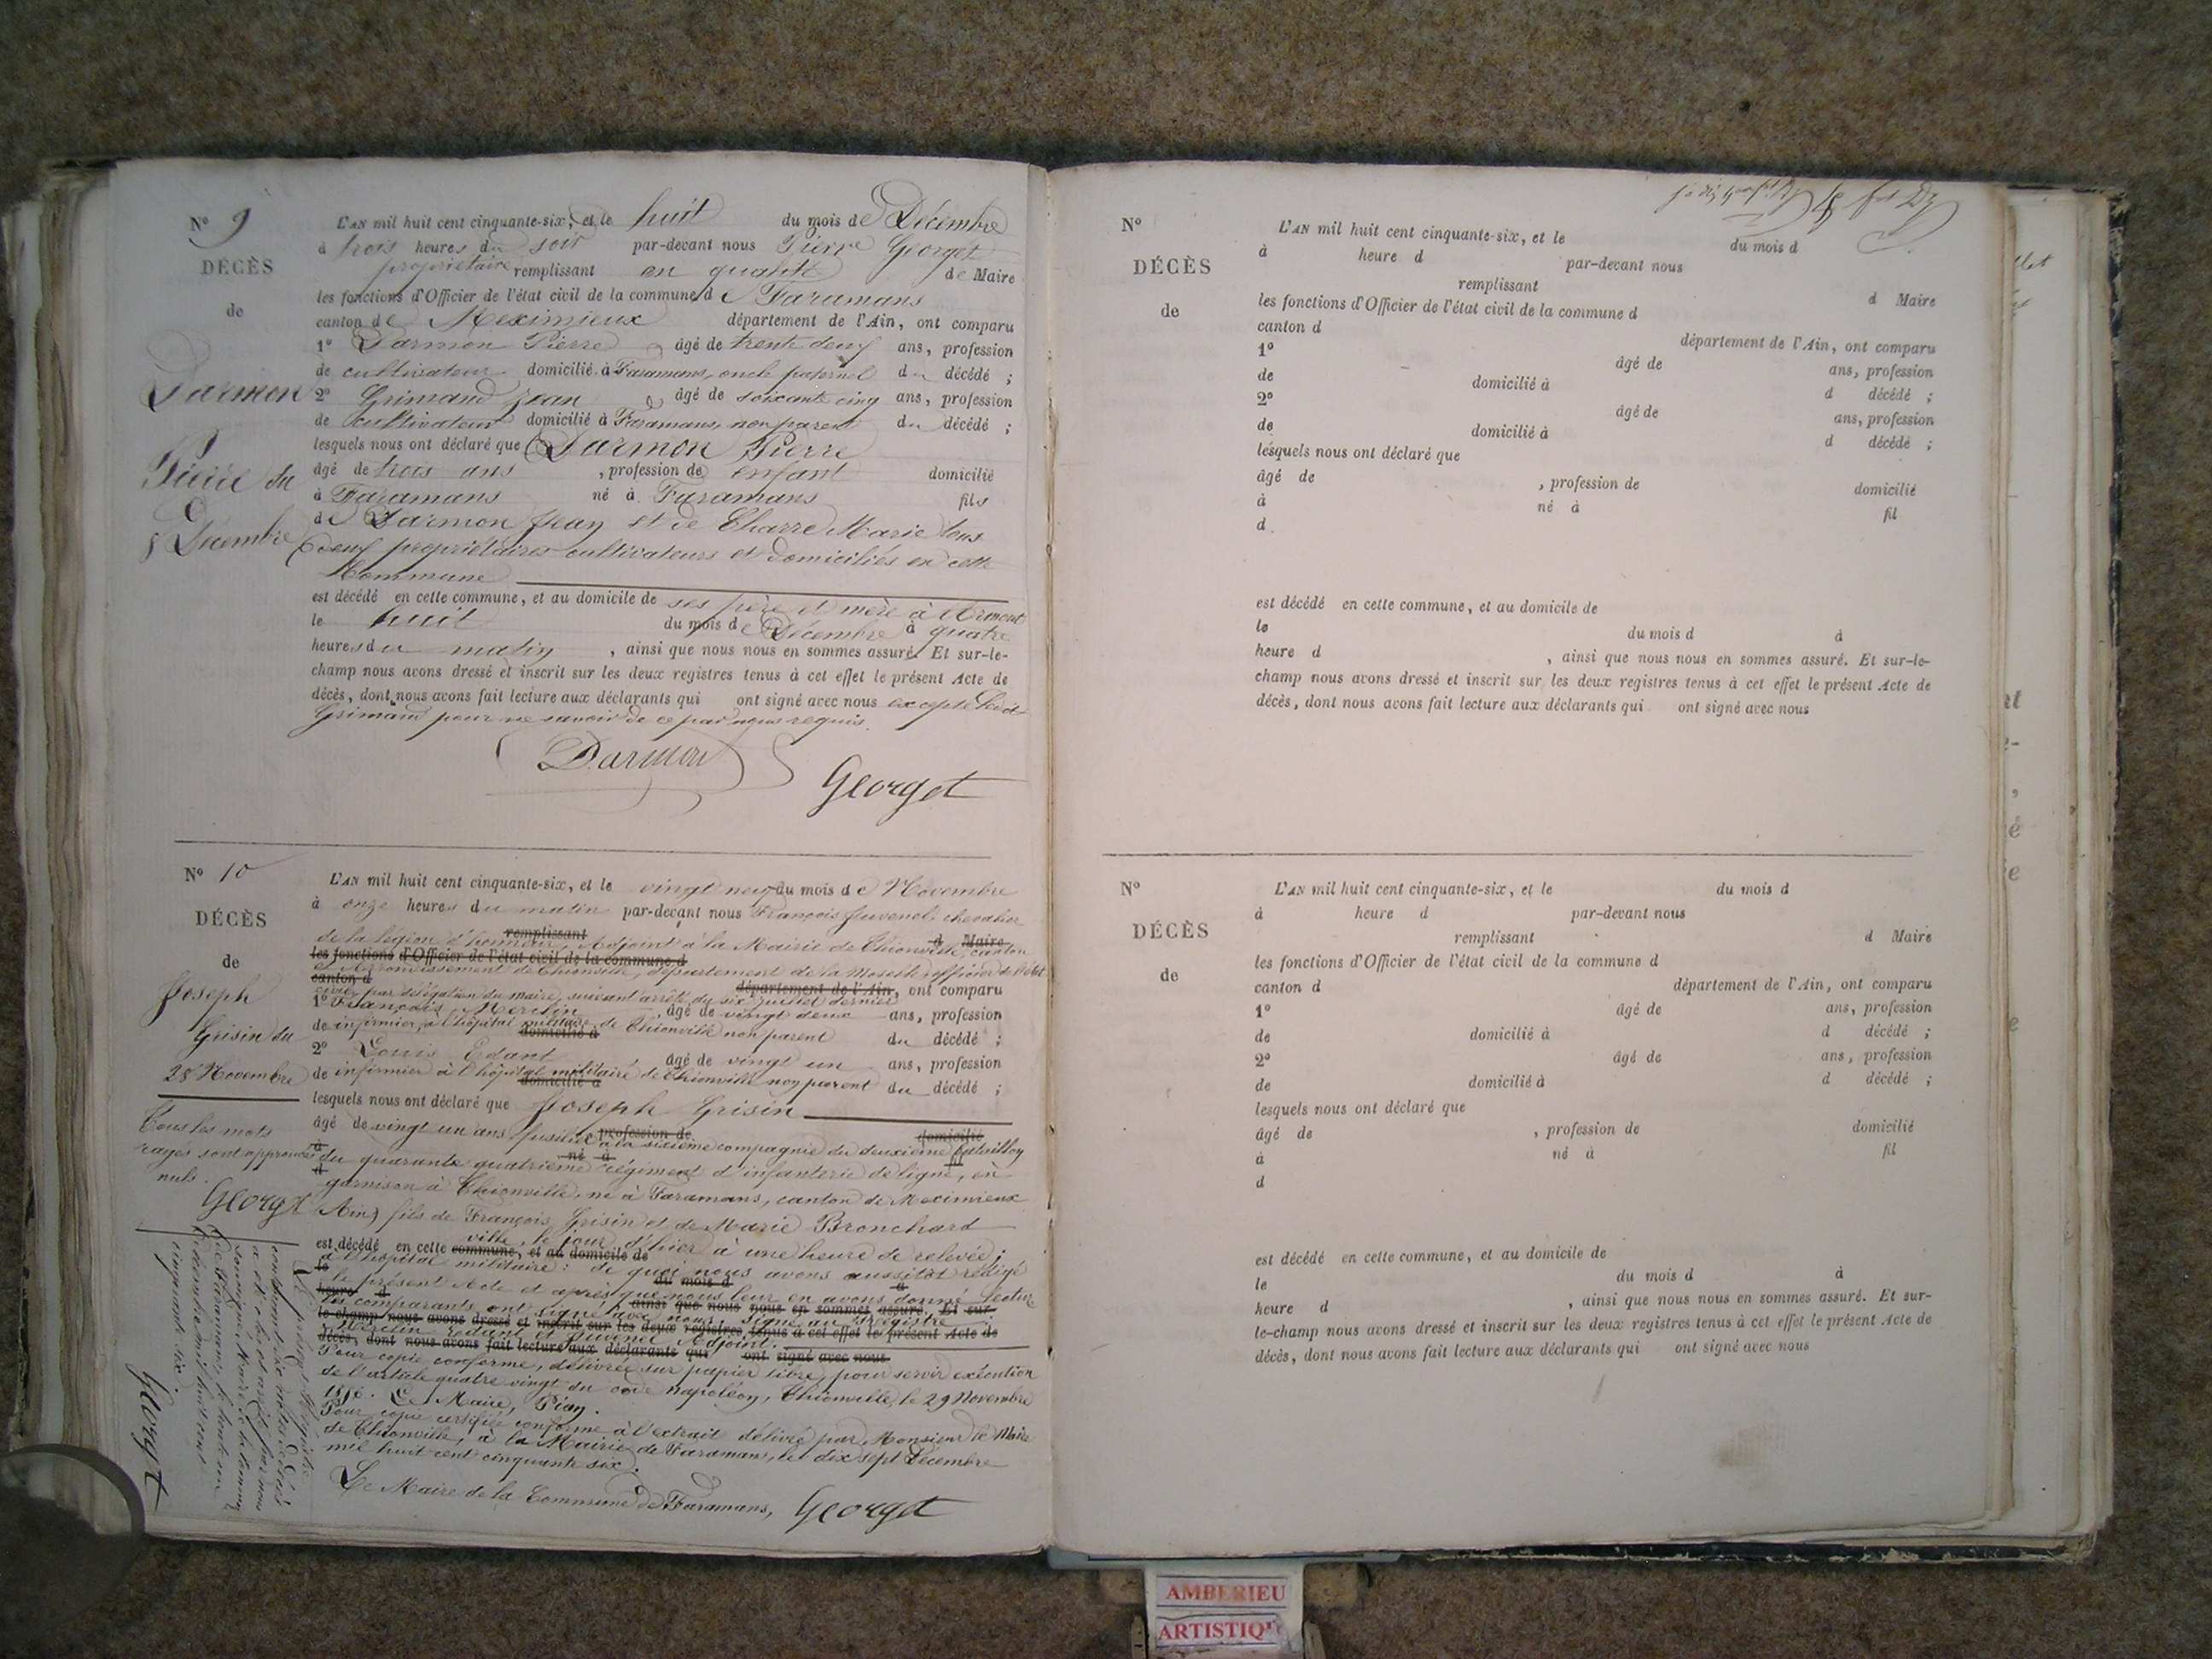 N° 9
DÉCÈS
de
Darmon
Pierre du
8 Décembre
L'AN mil huit cent cinquante-six, et le huit du mois de Décembre
à trois heures du soir par-devant nous Pierre Georget
propriétaire remplissant en qualité de Maire
les fonctions d'Officier de l'état civil de la commune de Faramans
canton de Meximieux département de l'Ain, ont comparu
1° Darmon Pierre âgé de trente deux ans, profession
de cultivateur domicilié à Faramans, oncle paternel du décédé ;
2° Grimand Jean âgé de soixante cinq ans, profession
de cultivateur domicilié à Faramans, non parent du décédé ;
lesquels nous ont déclaré que Darmon Pierre
âgé de trois ans , profession de enfant domicilié
à Faramans né à Faramans fils
de Darmon Jean et de Charre Marie tous
deux propriétaires cultivateurs et domiciliés en cette
Commune
est décédé en cette commune, et au domicile de ses père et mère à
le huit du mois de Décembre à quatre
heures du matin , ainsi que nous nous en sommes assuré. Et sur-le-
champ nous avons dressé et inscrit sur les deux registres tenus à cet effet le présent Acte de
décès, dont nous avons fait lecture aux déclarants qui ont signé avec nous excepté
Grimand pour ne savoir de ce par nous requis.
Darmon
Georget
N° 10
DÉCÈS
de
Joseph
Grisin du
28 Novembre
Tous les mots
rayés sont approuvés
nuls.
Georget
L'AN mil huit cent cinquante-six, et le vingt neuf du mois de Novembre
à onze heures du matin par-devant nous François Juvenel, chevalier
remplissant d Maire
de la légion d'honneur, Adjoint à la Mairie de Thionville, canton
les fonctions d'Officier de l'état civil de la commune d
et Arrondissement de Thionville, département de la Moselle officier de l'état
canton d département de l'Ain, ont comparu
civil, par délégation du maire, suivant arrêté du six juillet dernier
1° François Merclin , âgé de vingt deux ans, profession
de infirmier, à l'hôpital militaire de Thionville non parent du décédé ;
domicilié à
2° Louis Edant âgé de vingt un ans, profession
de infirmier à l'hôpital militaire de Thionville non parent du décédé ;
domicilié à
lesquels nous ont déclaré que Joseph Grisin
âgé de vingt un ans fusilier profession de domicilié
à la sixième compagnie du deuxième bataillon
à né à fil
du quarante quatrième régiment d'infanterie de ligne, en
d
garnison à Thionville, né à Faramans, canton de Meximieux
(Ain) fils de François Grisin et de Marie Bronchard
ville, le jour d'hier à une heure de relevée ;
est décédé en cette commune, et au domicile de
à l'hôpital militaire : de quoi nous avons aussitôt rédigé
le du mois d à
le présent Acte et après que nous leur en avons donné lecture
heure d
les comparants ont signé avec nous. Signé au registre
ainsi que nous nous en sommes assuré. Et sur
le-champ nous avons dressé et inscrit sur les deux registres tenus à cet effet le présent Acte de
Merclin, Edant et Juvenel Adjoint.
décès, dont nous avons fait lecture aux déclarants qui ont signé avec nous
Pour copie conforme, délivrée sur papier libre, pour servir exécution
de l'article quatre vingt du code napoléon, Thionville, le 29 Novembre
1856. Le Maire,
Pour copie certifiée conforme à l'extrait délivré par Monsieur le Maire
de Thionville, à la Mairie de Faramans, le dix sept Décembre
mil huit cent cinquante six.
Le Maire de la Commune de Faramans, Georget
Le présent Registre
contenant dix actes de décès
a été clos et arrêté par nous
soussigné Maire de la Commune
de Faramans, le trente un
Décembre mil huit cent
cinquante six.
Georget
N°
DÉCÈS
de
L'AN mil huit cent cinquante-six, et le du mois d
à heure d par-devant nous
remplissant d Maire
les fonctions d'Officier de l'état civil de la commune d
canton d département de l'Ain, ont comparu
1° âgé de ans, profession
de domicilié à d décédé ;
2° âgé de ans, profession
de domicilié à d décédé ;
lesquels nous ont déclaré que
âgé de , profession de domicilié
à né à fil
d
est décédé en cette commune, et au domicile de
le du mois d à
heure d , ainsi que nous nous en sommes assuré. Et sur-le-
champ nous avons dressé et inscrit sur les deux registres tenus à cet effet le présent Acte de
décès, dont nous avons fait lecture aux déclarants qui ont signé avec nous
N°
DÉCÈS
de
L'AN mil huit cent cinquante-six, et le du mois d
à heure d par-devant nous
remplissant d Maire
les fonctions d'Officier de l'état civil de la commune d
canton d département de l'Ain, ont comparu
1° âgé de ans, profession
de domicilié à d décédé ;
2° âgé de ans, profession
de domicilié à d décédé ;
lesquels nous ont déclaré que
âgé de , profession de domicilié
à né à fil
d
est décédé en cette commune, et au domicile de
le du mois d à
heure d , ainsi que nous nous en sommes assuré. Et sur-
le-champ nous avons dressé et inscrit sur les deux registres tenus à cet effet le présent Acte de
décès, dont nous avons fait lecture aux déclarants qui ont signé avec nous
AMBERIEU
ARTISTIQUE